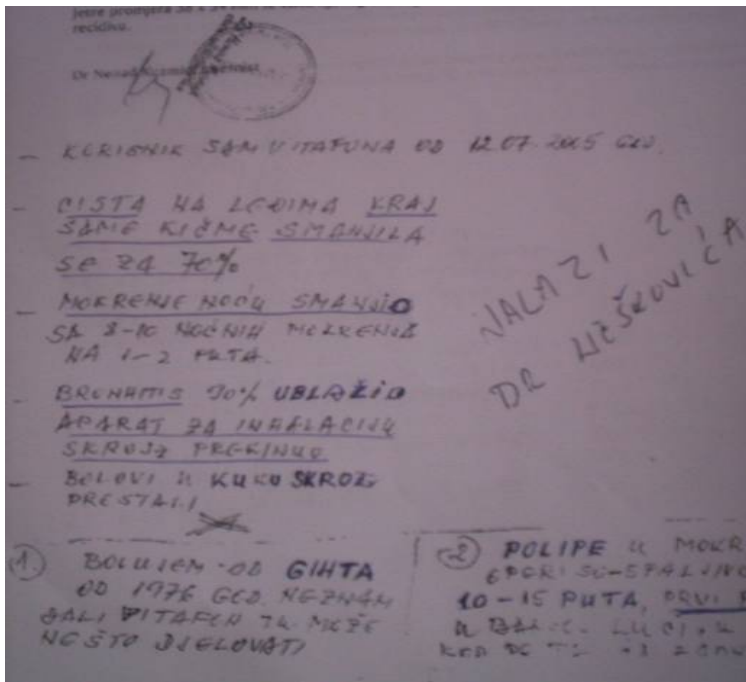 jetre promjera 38 x 34
recidiva.
Dr Nenad
- KORISNIK SAM VITAFUNA OD 12.07.2005 GOD.
- CISTA NA LEĐIMA KRAJ
SAME KIČME SMANJILA
SE ZA 70%
- MOKRENJE NOĆU SMANJIO
SA 8-10 NOĆNIH MOKRENJA
NA 1-2 PUTA.
- BRONHITIS 90% UBLAŽIO
APARAT ZA INHALACIJU
SKROJZ PREKINUO
- BOLOVI U KUKU SKROZ
PRESTALI
NALAZI ZA
DR NEŠKOVIĆA
1. BOLUJEM OD GIHTA
OD 1976 GOD. NEZNAM
DALI VITAFUN TU MOŽE
NEŠTO DJELOVATI
2 POLIPE U MOKR
10-15 PUTA, PRVI